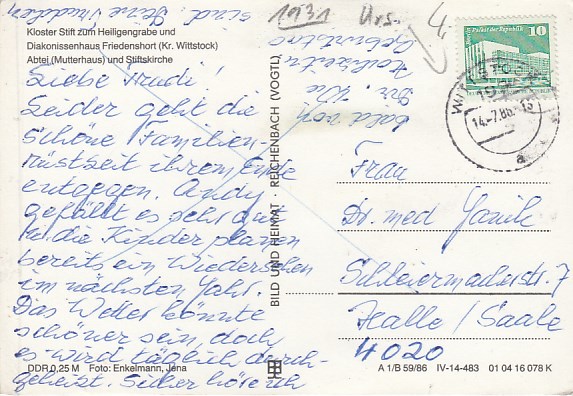 Kloster Stift zum Heiligengrabe und
Diakonissenhaus Friedenshort (Kr. Wittstock)
Abtei (Mutterhaus) und Stiftskirche
Liebe Trudi!
Leider geht die
schöne Familien-
rüstzeit ihrem Ende
entgegen. Andy
gefällt es sehr gut
u. die Kinder planen
bereits ein Wiedersehen
im nächsten Jahr.
Das Wetter könnte
schöner sein, doch
es wird täglich durch-
geheizt. Sicher höre ich
bald von
Dir. Wie
sind Deine
1931
Urs.
4.
BILD UND HEIMAT · REICHENBACH (VOGTL)
Palast der Republik
10
DDR
14.-7.86.-15
a
Frau
Dr. med Janik
Schleiermacherstr. 7
Halle / Saale
4020
DDR 0,25 M Foto: Enkelmann, Jena
A 1/B 59/86 IV-14-483 01 04 16 078 K